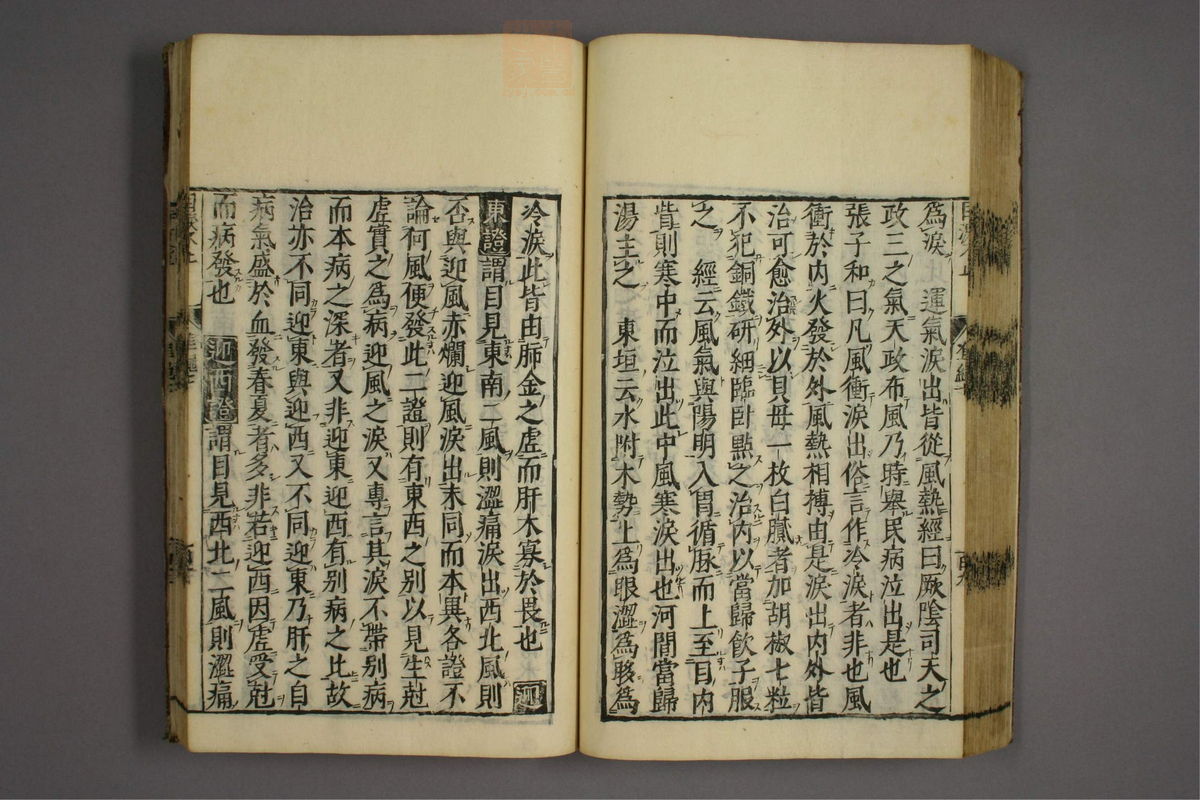 為淚 運氣淚出皆從風熱經曰厥陰司天之
政三之氣天政布風乃時舉民病泣出是也
張子和曰凡風衝淚出俗言作冷淚者非也風
衝於內火發於外風熱相搏由是淚出內外皆
治可愈治外以貝母一枚白膩者加胡椒七粒
不犯銅鐵研細臨臥點之治內以當歸飲子服
之 經云風氣與陽明入胃循脉而上至目內
眥則寒中而泣出此中風寒淚出也河間當歸
湯主之 東垣云水附木勢上為眼澀為眵為
冷淚此皆由肺金之虛而肝木寡於畏也 迎
東證謂目見東南二風則澀痛淚出西北風則
否與迎風赤爛迎風淚出末同而本異各證不
論何風便發此二證則有東西之別以見生尅
虛實之為病迎風之淚又專言其淚不帶別病
而本病之深者又非迎東迎西有別病之比故
治亦不同迎東與迎西又不同迎東乃肝之自
病氣盛於血發春夏者多非若迎西因虛受尅
而病發也 迎西證謂目見西北二風則澀痛